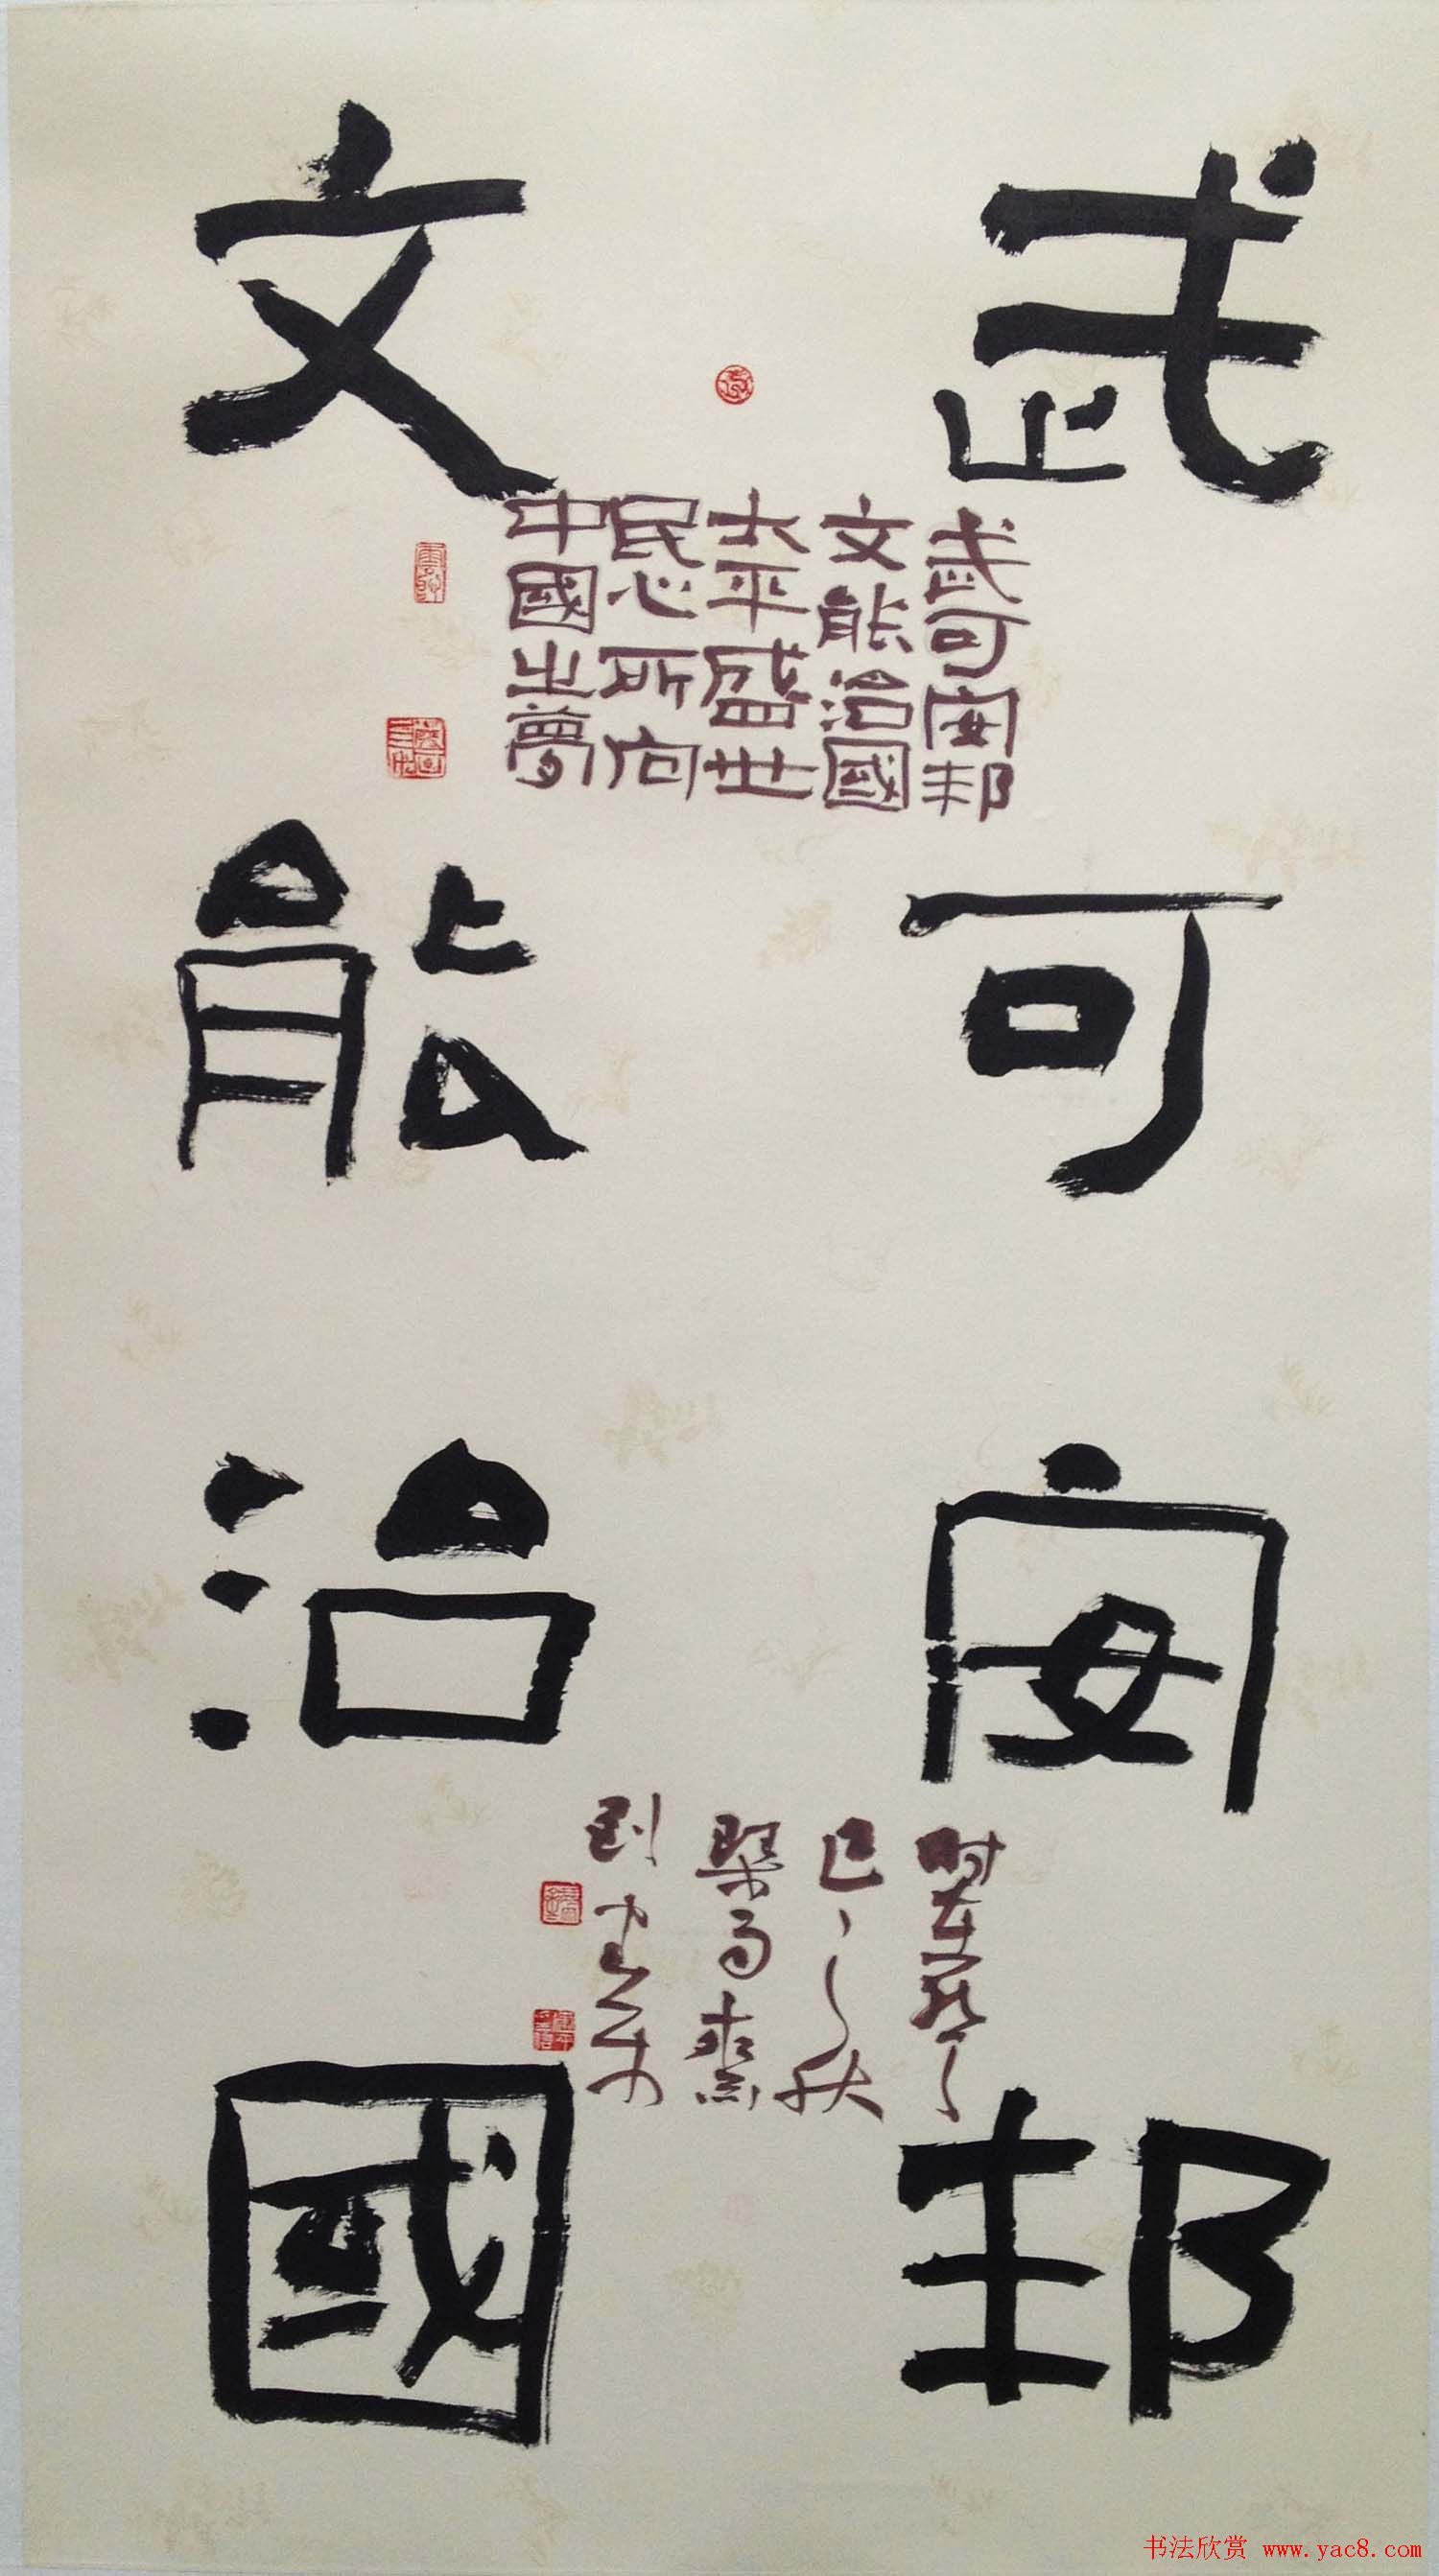 武可安邦
文能治國
武可安邦
文能治國
太平盛世
民心所向
中國之夢
时在癸
巳之秋
墨斋
刘
书法欣赏 www.yac8.com